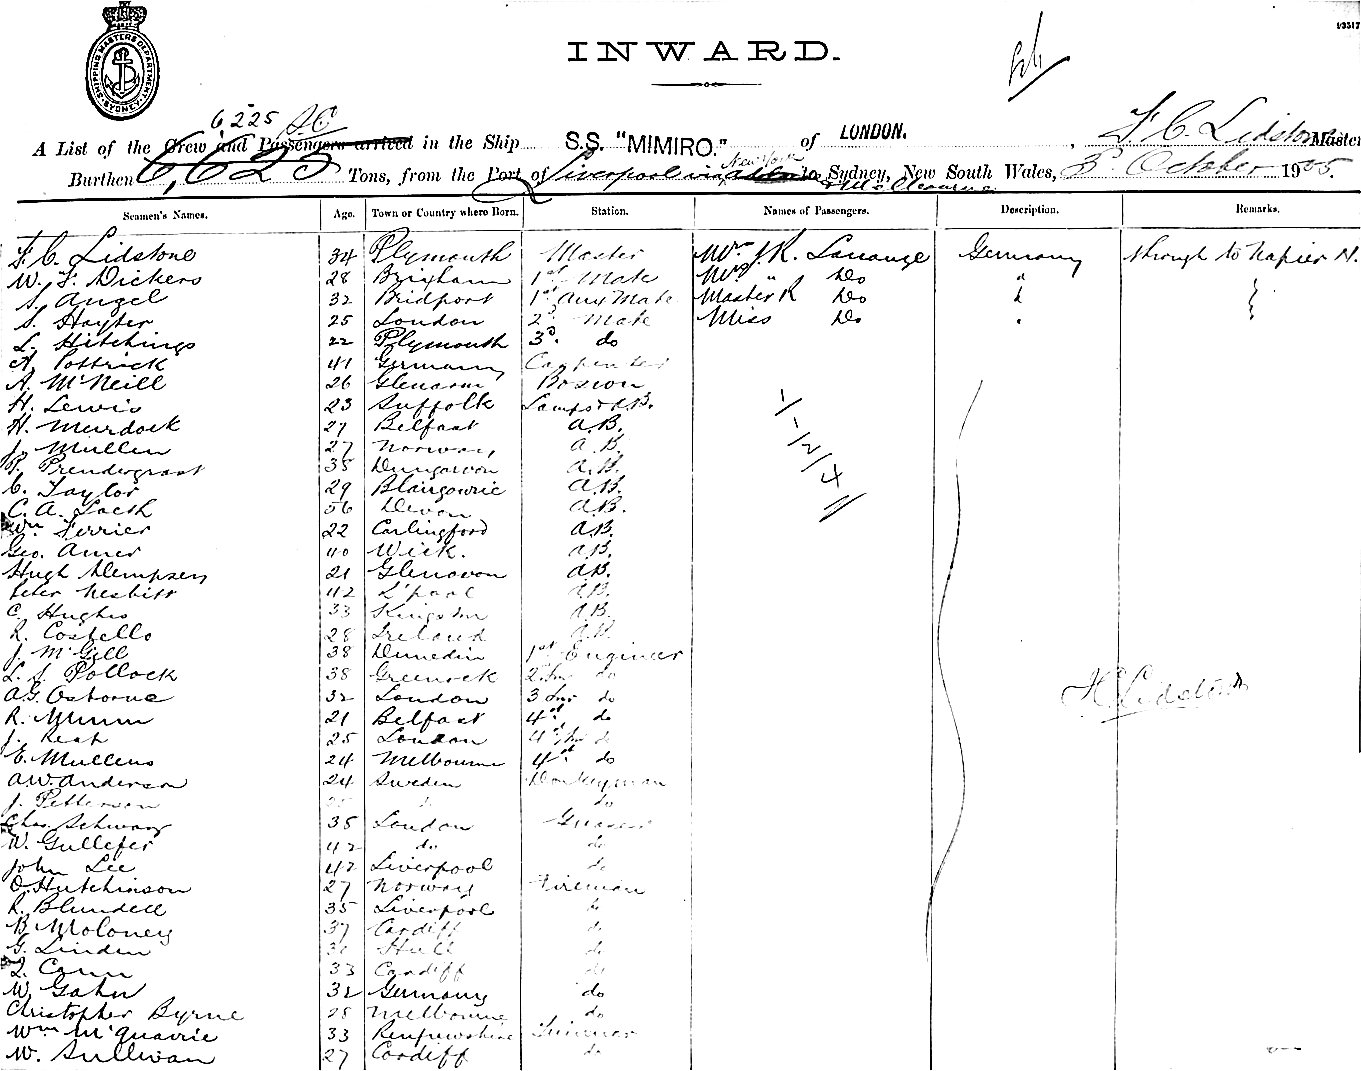 SHIPPING MASTERS DEPARTMENT SYDNEY
INWARD.
6225
A List of the Crew and Passengers arrived in the Ship S.S. "MIMIRO." of LONDON. , F C. Lidstone Master
Burthen 6,625 Tons, from the Port of Liverpool via New York & Melbourne to Sydney, New South Wales, 3 October 1905.
Seamen's Names. Age. Town or Country where Born. Station. Names of Passengers. Description. Remarks.
F. C. Lidstone 34 Plymouth Master Mr J K. Lanauge Germany through to Napier N.
W. F. Dickers 28 Brixham 1st Mate Mrs " Do "
S. Angel 32 Bridport 1st Aux Mate Master K Do "
S. Hayter 25 London 2d Mate Miss Do "
L. Hitchings 22 Plymouth 3d. do
A. Pottrick 41 Germany Carpenter
A. McNeill 26 Glenarm Boson
H. Lewis 23 Suffolk Lamps & A.B.
H. Murdock 27 Belfast A.B.
J. Mullen 27 Norway A.B.
P. Prendergrast 35 Dungarvon A.B.
C. Taylor 29 Blairgowrie A.B.
C. A. 56 Devon A.B.
Wm Ferrier 22 Carlingford A.B.
Geo. Amer 40 Wick. A.B.
Hugh Dempsey 21 Glenavon A.B.
Peter Nesbitt 42 L'pool A.B.
C. Hughes 33 Kingston A.B.
R. Costello 28 Ireland A.B.
J. McGill 38 Dunedin 1st Engineer
L. S. Pollock 38 Greenock 2 do
A.G. Osborne 32 London 3 do
R. Mimm 21 Belfast 4th do
J. Reap 25 London 4th
E. Mullens 24 Melbourne 4th do
A.W. Anderson 24 Sweden Donkeyman
J. Petterson 25 do do
Chas. Schwarz 35 London Greaser
W. Gullefer 42 do do
John Lee 42 Liverpool do
O. Hutchinson 27 Norway Fireman
R. Blundell 35 Liverpool do
B. Moloney 37 Cardiff do
G. Linden Hull do
Cann 33 Cardiff do
W. Gahn 32 Germany do
Christopher Byrne 28 Melbourne do
Wm McQuarrie 33 Renfrewshire Trimmer
W. Sullivan 27 Cardiff do